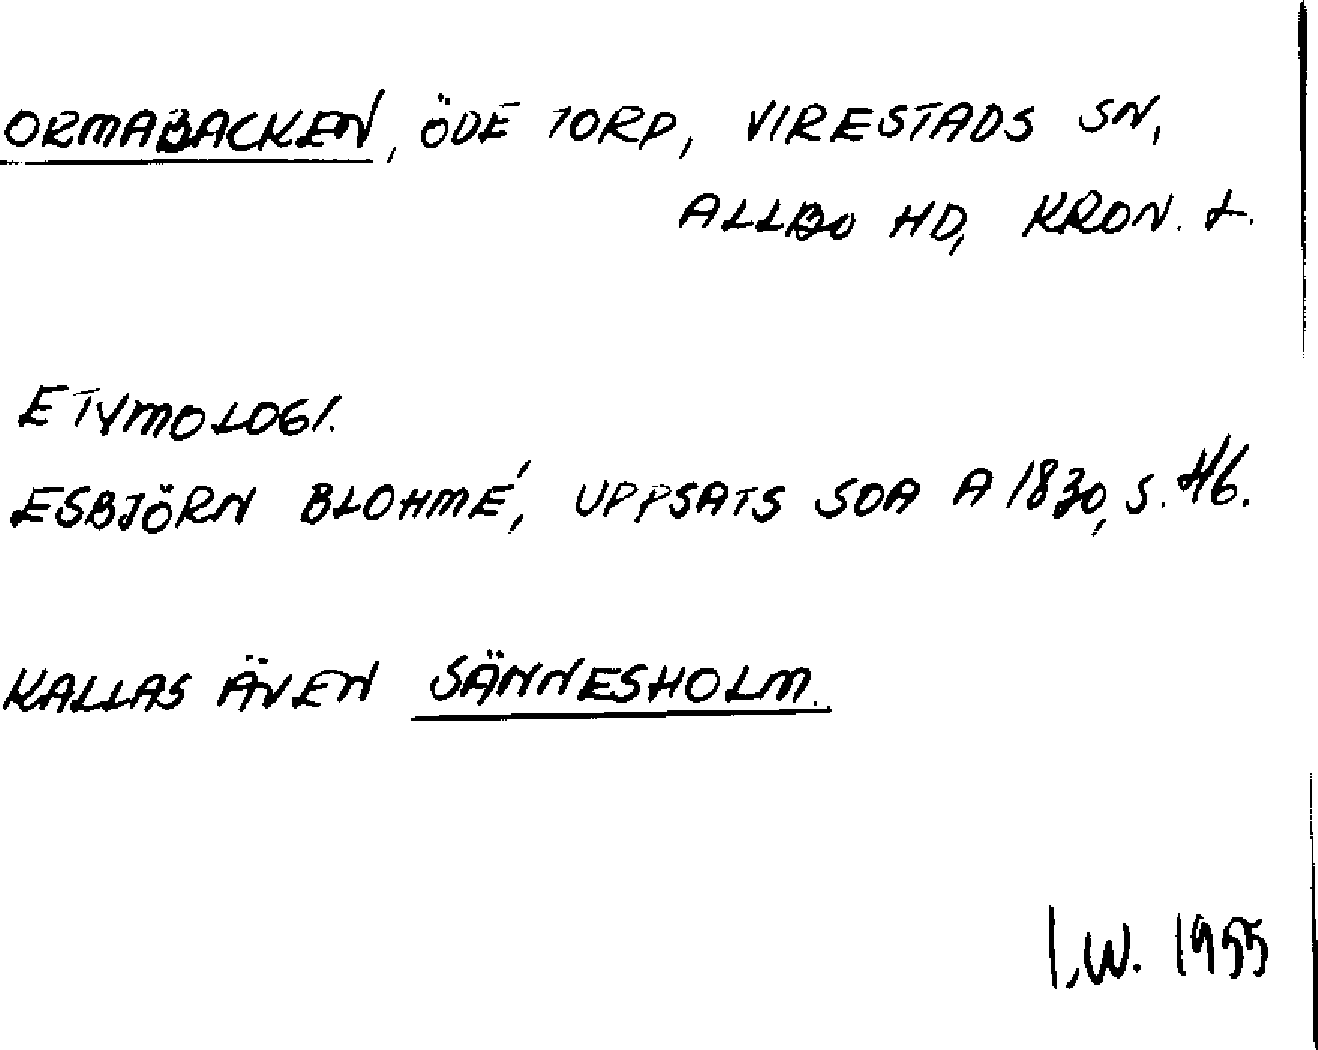 ORMABACKEN, ÖDE TORP, VIRESTADS SN,
ALLBO HD, KRON. L.
ETYMOLOGI.
ESBJÖRN BLOHMÉ, UPPSATS SOA A 1830, S. 46.
KALLAS ÄVEN SÄNNESHOLM.
I.W. 1955